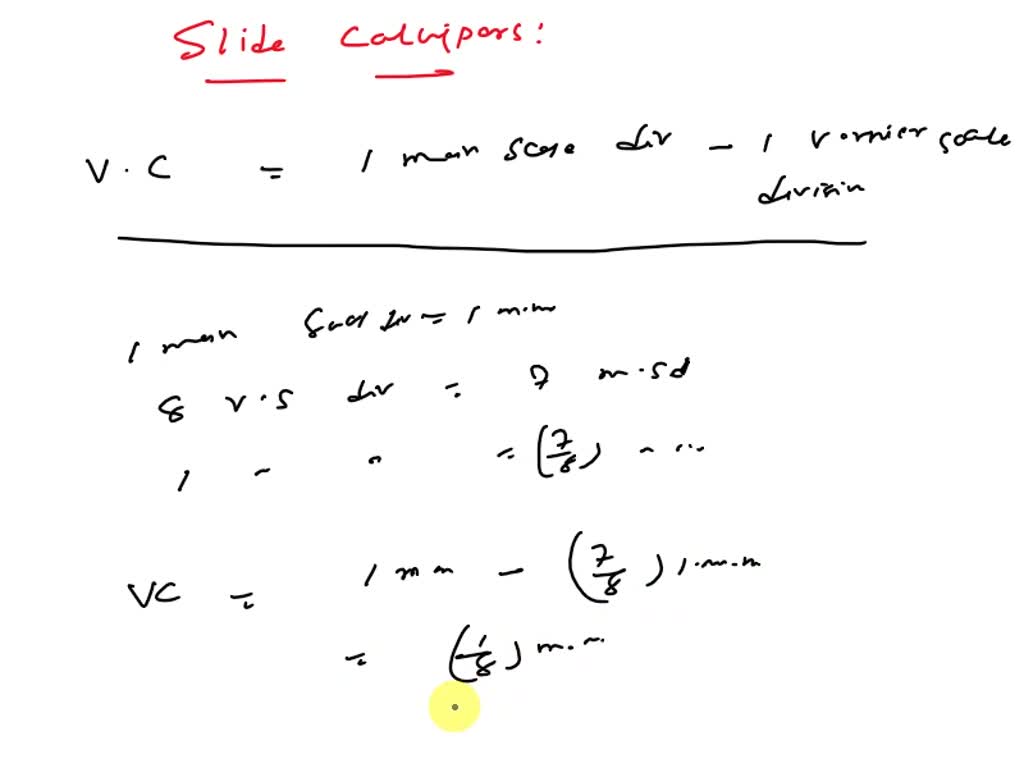 Slide Calwipars:
V.C = 1 main scale div - 1 vernier scale
division
1 main scal div = 1 m.m
8 v.s div = 7 m.sd
1 " " = (7/8) " ...
VC = 1 mm - (7/8) 1.m.m
= (1/8) m.m.